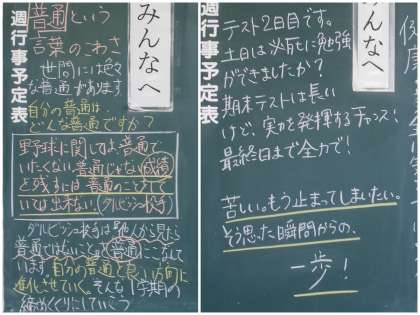 みんなへ
週行事予定表
普通という
言葉のこわさ
世間には色々
な普通があります
自分の普通は
どんな普通ですか?
野球に関してよ、普通で
いたくない。普通じゃない成績
を残すには普通のことをして
いては出来ない。(ダルビッシュ投手)
ダルビッシュ投手は「他人から見たら
普通ではないこと」を普通にこなして
います。自分の普通を良い方向に
進化させていく。そんな1学期の
締めくくりにしていこう
みんなへ
週行事予定表
テスト2日目です。
土日は必死に勉強
ができましたか?
期末テストは長い
けど、実力を発揮するチャンス!
最終日まで全力で!
苦しい。もう止まってしまいたい。
そう思った瞬間からの、
一歩!